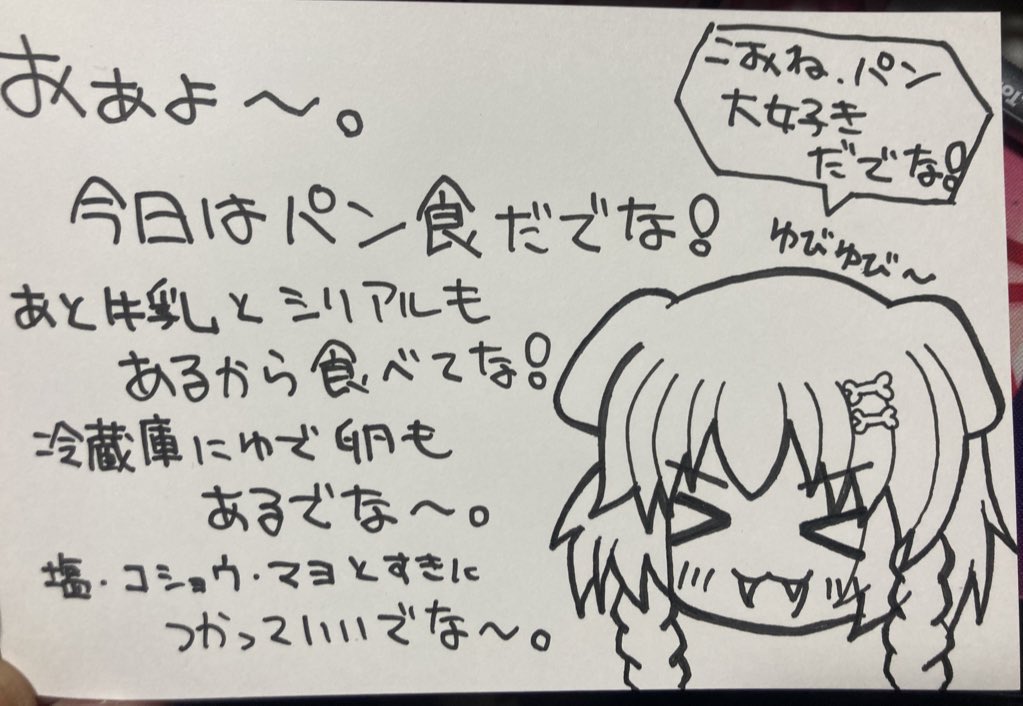 おぁよ〜。
今日はパン食だでな!
あと牛乳とシリアルも
あるから食べてな!
冷蔵庫にゆで卵も
あるでな〜。
塩・コショウ・マヨとすきに
つかっていいでな〜。
こおね、パン
大好き
だでな!
ゆびゆび〜